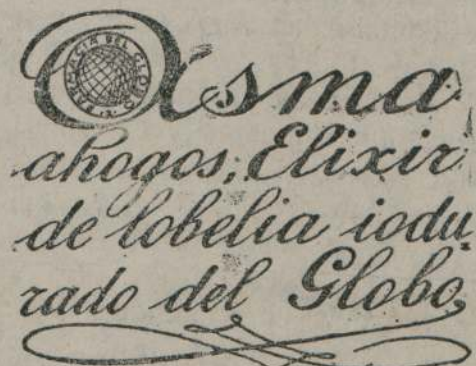 FARMACIA DEL GLOBO
Asma
ahogos; Elixir
de lobelia iodu-
rado del Globo,